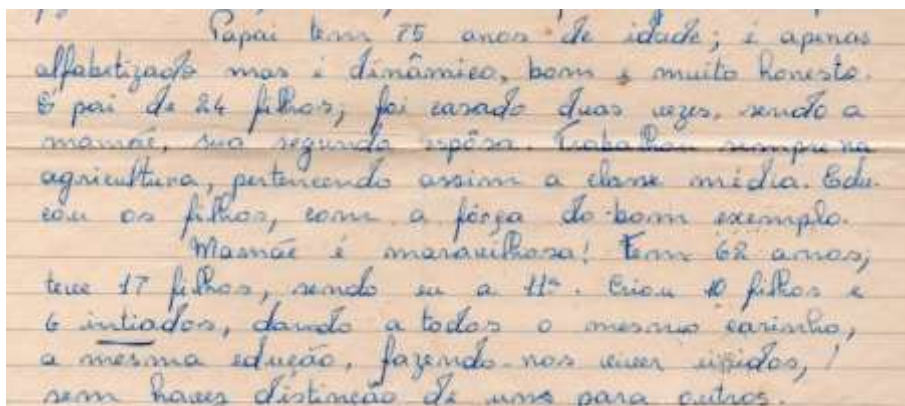 Papai tem 75 anos de idade; é apenas
alfabetizado mas é dinâmico, bom e muito honesto.
É pai de 24 filhos; foi casado duas vezes, sendo a
mamãe, sua segunda espôsa. Trabalhou sempre na
agricultura, pertencendo assim a classe média. Edu-
cou os filhos, com a fôrça do bom exemplo.
Mamãe é maravilhosa! Tem 62 anos;
teve 17 filhos, sendo eu a 11ª. Criou 10 filhos e
6 intiados, dando a todos o mesmo carinho,
a mesma edução, fazendo-nos viver unidos,
sem haver distinção de uns para outros.